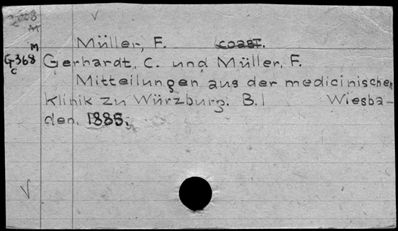 2008 M
Müller, F. coast.
M
G368
c
Gerhardt, C. und Müller, F.
Mitteilungen aus der medicinischen
Klinik zu Würzburg. B.I Wiesba-
den. 1885.